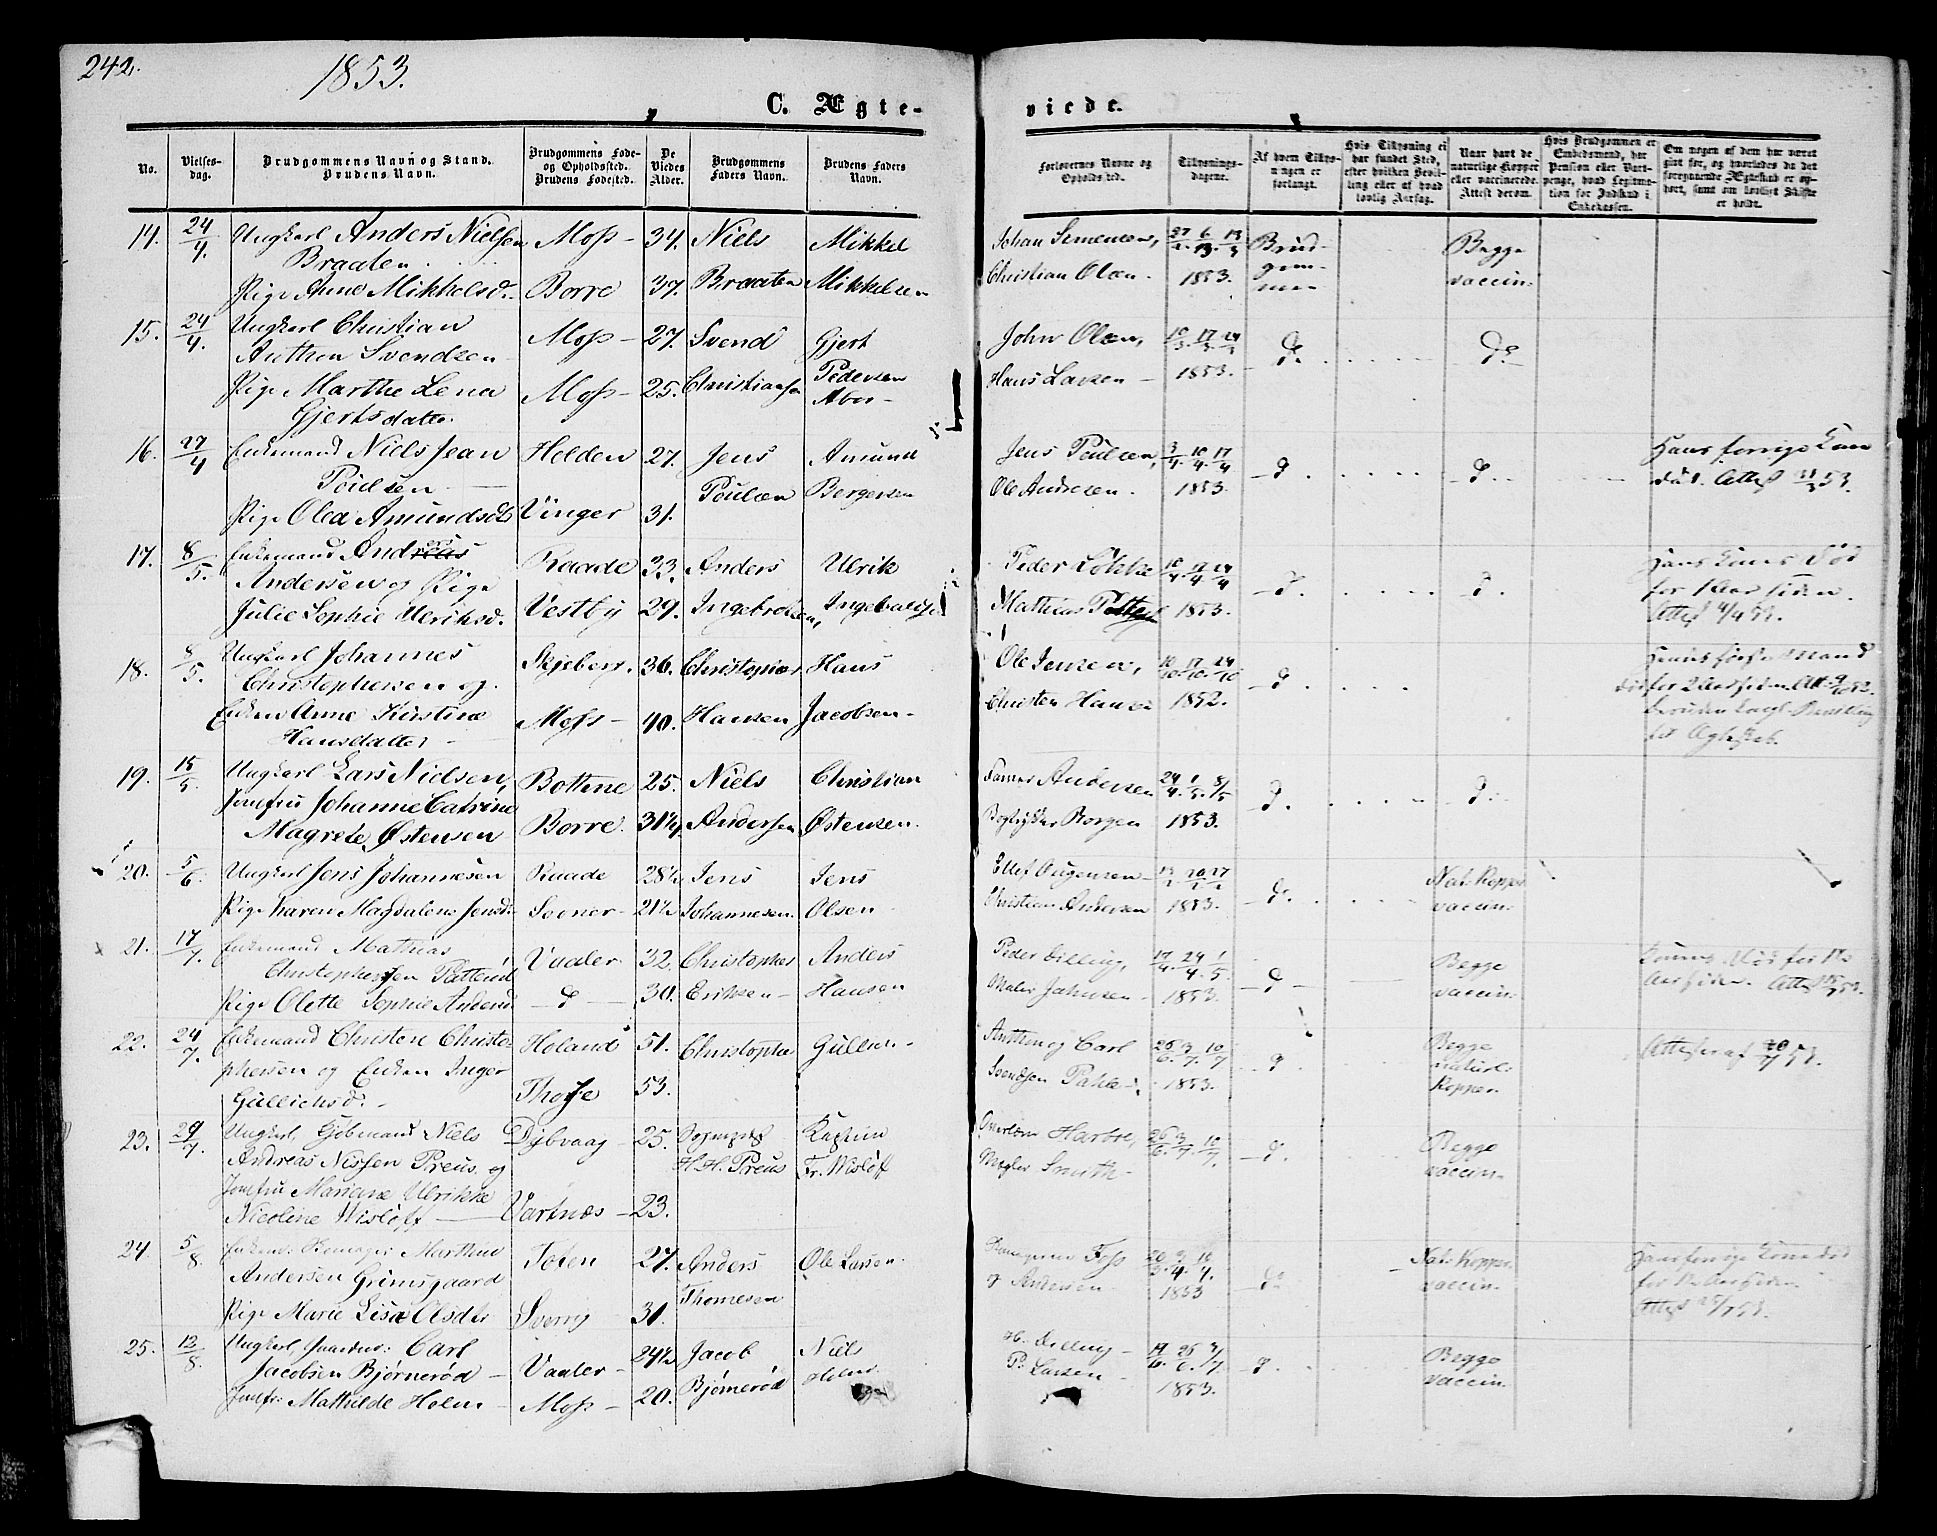 242.
1853.
C. Ægte-
viede.
No.
Vielses-
dag.
Brudgommens Navn og Stand.
Brudens Navn.
Brudgommens Føde-
og Opholdssted.
Brudens Fødested.
De
Viedes
Alder.
Brudgommens
Faders Navn.
Brudens Faders
Navn.
Forlovernes Navne og
Opholdssted.
Tillysnings-
dagene.
Af hvem Tillys-
ningen er
forlangt.
Hvis Tillysning ei
har fundet Sted,
efter hvilken Bevil-
ling eller af hvad
lovlig Aarsag.
Naar havt de
naturlige Kopper
eller vaccinerede.
Attest derom.
Hvis Brudgommen er
Embedsmand, har
Pension eller Vart-
penge, hvad Legitima-
tion for Indskud i
Enkekassen.
Om nogen af dem har været
gift før, og hvorledes da det
foregaaende Ægteskab er op-
hørt, samt om lovligt Skifte
er holdt.
14. 24/4. Ungkarl Anders Nielsen Moss - 34. Niels Mikkel
Braaten Braaten Mikkelsen
Pige Anne Mikkelsd. Borre 37.
Johan Simensen, 1853. Brud-
Christian Olsen. gom-
men
Begge
vaccin.
15. 24/4. Ungkarl Christian Moss - 27. Svend Gjert
Anthon Svendsen Christiansen Pedersen
Pige Marthe Lena Moss - 25. Aber-
Gjertsdatter.
John Olsen, 10/3. 17/3. 24/3 do. do.
Hans Larsen - 1853.
16. 27/4 Enkemand Niels Jean Holden 27. Jens Amund
Poulsen Poulsen Bergersen
Pige Olea Amundsd. Vinger 31.
Jens Poulsen, 3/4. 10/4. 17/4 d. d.
Ole Andresen. 1853.
Hans forrige Kone
død. Attest 11/3 53.
17. 8/5. Enkemand Andreas Raade 33. Anders Ulrik
Andersen og Pige
Julie Sophie Ulriksd. Vestby 29. Ingebretsen, Ingebretsen
Peder Løkke 10/4. 17/4. 24/4 d. d.
Mathias 1853.
Hans Kone død
for 1 Aar siden.
Attest 4/4 53.
18. 8/5. Ungkarl Johannes Skjeberg. 36. Christopher Hans
Christophersen og
Enken Anne Kirstine Moss - 40. Hansen Jacobsen -
Hansdatter -
Ole Jensen, 10/10. 17/10. 24/10 d.
Christen Hansen 1852.
Hendes første Mand
død for 2 Aar siden. Att. 9/10 52.
for Ægteskab.
19. 15/5. Ungkarl Lars Nielsen, Bottne 25. Niels Christian
Jomfru Johanne Catrine
Magrete Østensen Borre. 31½. Andersen Østensen.
Andersen 24/4. 1/5. 8/5 d. d.
Borgen 1853.
20. 5/6. Ungkarl Jens Johannesen Raade 28½ Jens Jens
Pige Karen Magdalena Jensd. Sooner - 21½ Johannesen. Olsen
Ellef Augensen - d. Nat. Kopper
Christian Andersen 1853. vaccin.
21. 17/7. Enkemand Mathias Vaaler 32. Christopher Anders
Christophersen
Pige Olette Sophie Andersd. - d - 30. Eriksen - Hansen
Peder Dilling, 17/4. 24/4. 1/5 d Begge
Maler Jahnsen - 1853. vaccin.
Konen død for
Aar siden. Attest 53.
22. 24/7. Enkemand Christen Christo- Høland 51. Christopher Gullich -
phersen og Enken Inger
Gullichsd. - Thorse 53.
Anthon og Carl 26/6. 3/7. 10/7 d Begge
Svendsen 1853. naturl.
Kopper.
Attester af 53.
23. 29/7. Ungkarl, Kjøbmand Niels Dybvaag - 25. Sogneprest Kaptein
Andreas Nissen Preus og H. H. Preus Fr. Wisløff
Jomfru Mariane Ulrikke
Nicoline Wisløff Vartnæs - 23.
26/6. 3/7. 10/7. d. Begge
Mægler Smith - vaccin.
24 5/8. Marthin Toten 27. Anders Ole Larsen.
Andersen Grimsgaard Thomesen
Pige Marie Lisa Olsdtr Sverrig 31.
Foss do Nat. Kopper.
og Andersen. 1853 vaccin.
Hans forrige Kone død
for Aar siden
Attest 53.
25. 12/8. Ungkarl, Carl Vaaler - 24½ Jacob Niels
Jacobsen Bjørnerød - Bjørnerød Holm
Jomfr. Mathilde Holm - Moss - 20.
H. Dilling - 19/6. 26/6. 3/7. d. Begge
P. Larsen - 1853. vaccin.